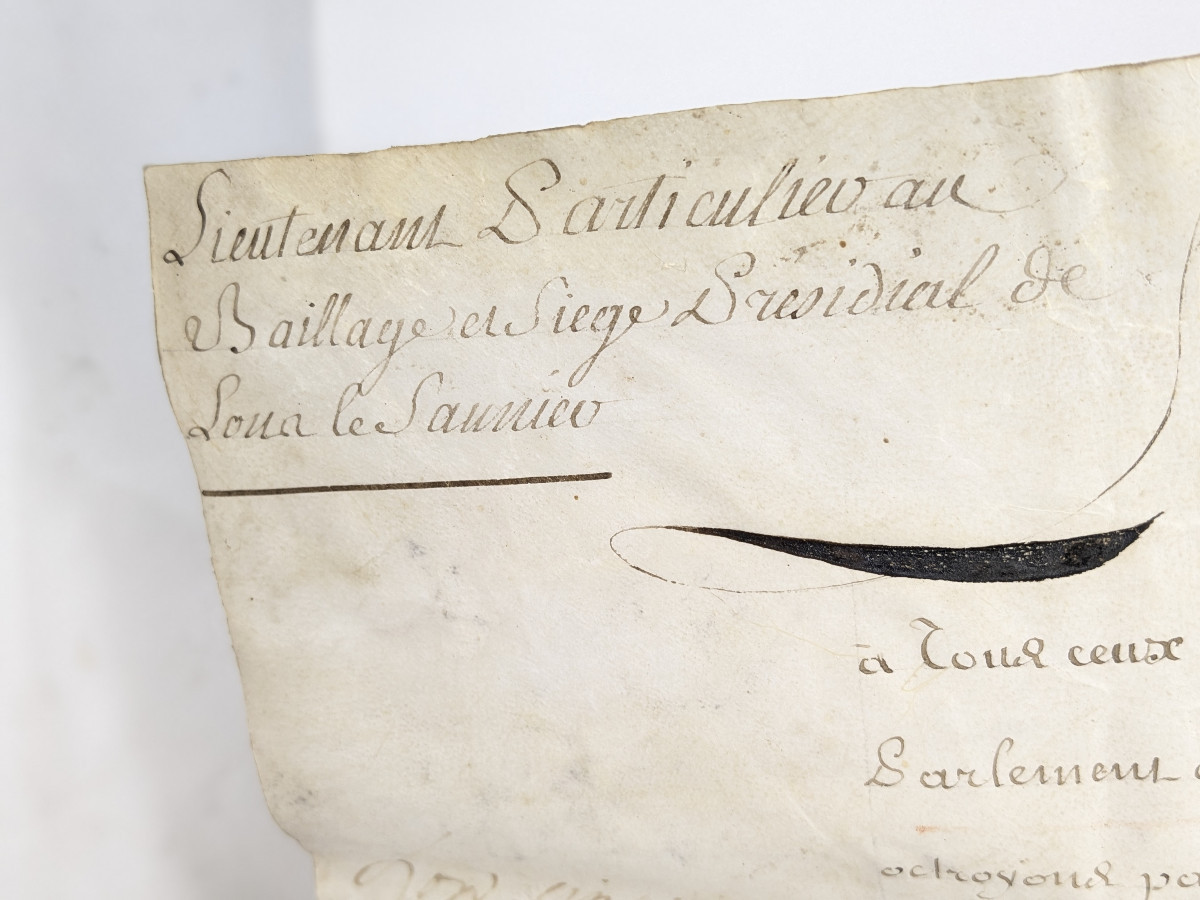 Lieutenant Particulier au
Baillage et Siege Présidial de
Lons le Saunier
à Tous ceux
Parlement
octroyons pa